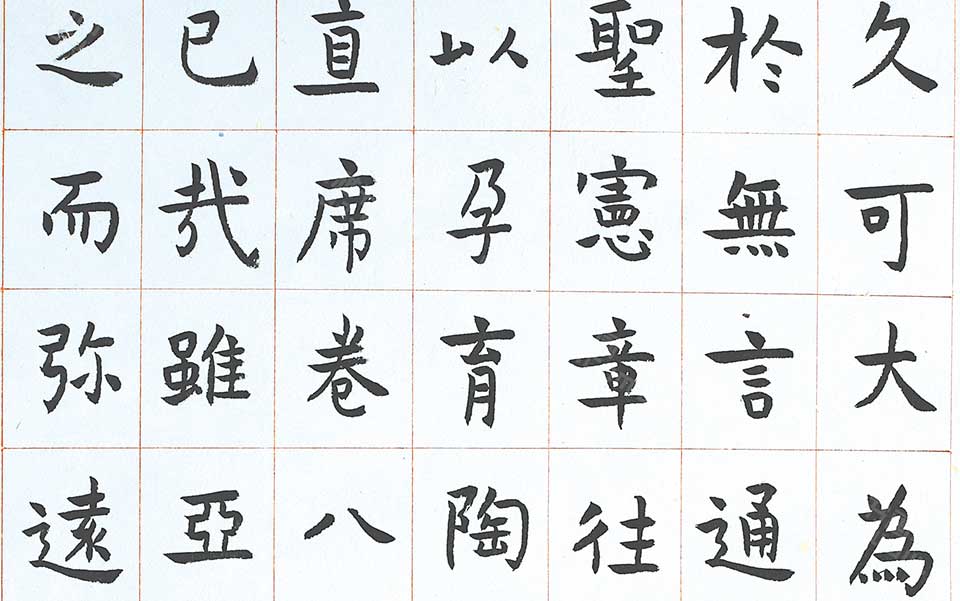 久可大為
於無言通
聖憲章往
以孕育陶
直席卷八
已哉雖亞
之而弥遠